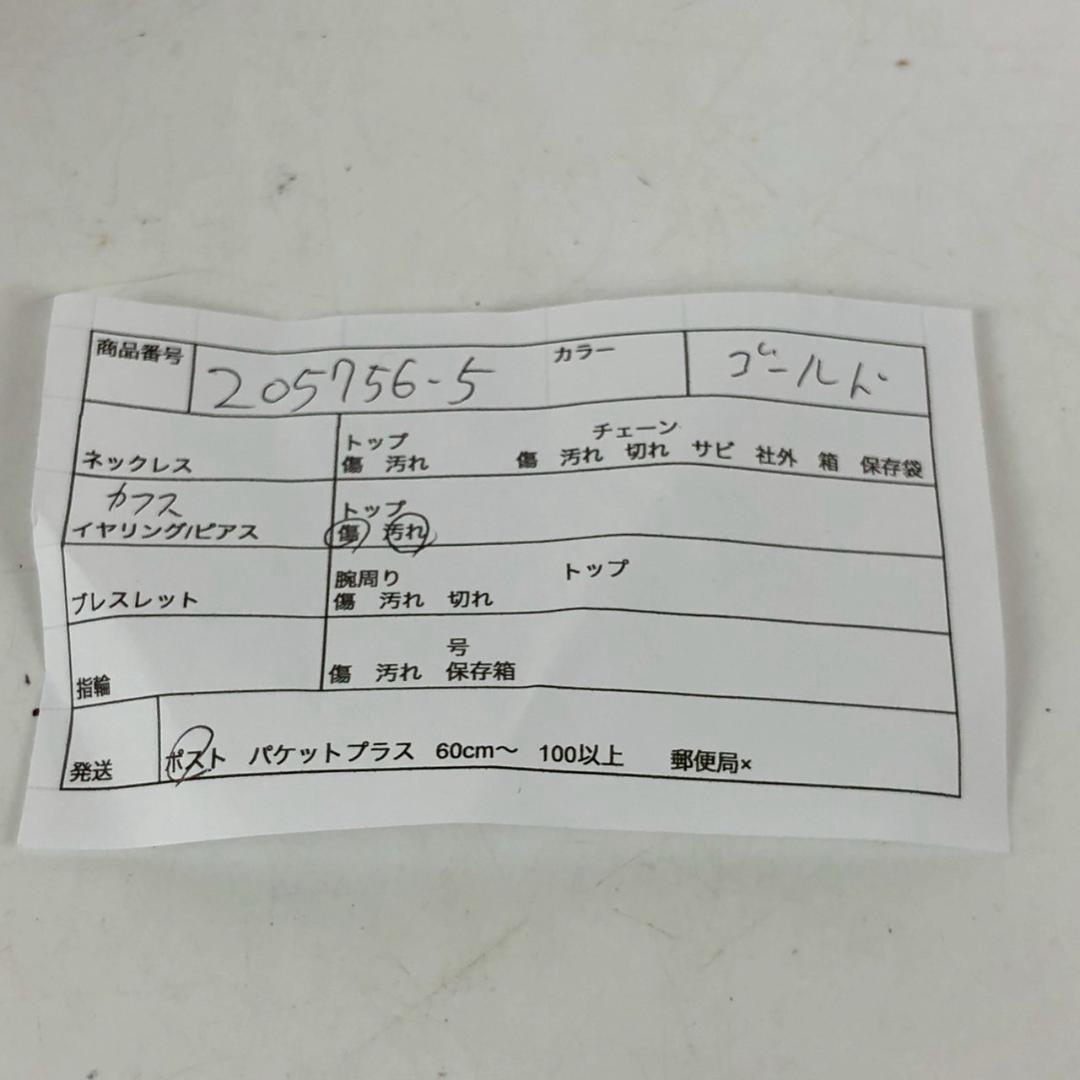 商品番号 205756-5 カラー ゴールド
トップ チェーン
ネックレス 傷 汚れ 傷 汚れ 切れ サビ 社外 箱 保存袋
カフス トップ
イヤリング/ピアス 傷 汚れ
腕周り トップ
ブレスレット 傷 汚れ 切れ
号
指輪 傷 汚れ 保存箱
発送 ポスト パケットプラス 60cm〜 100以上 郵便局×